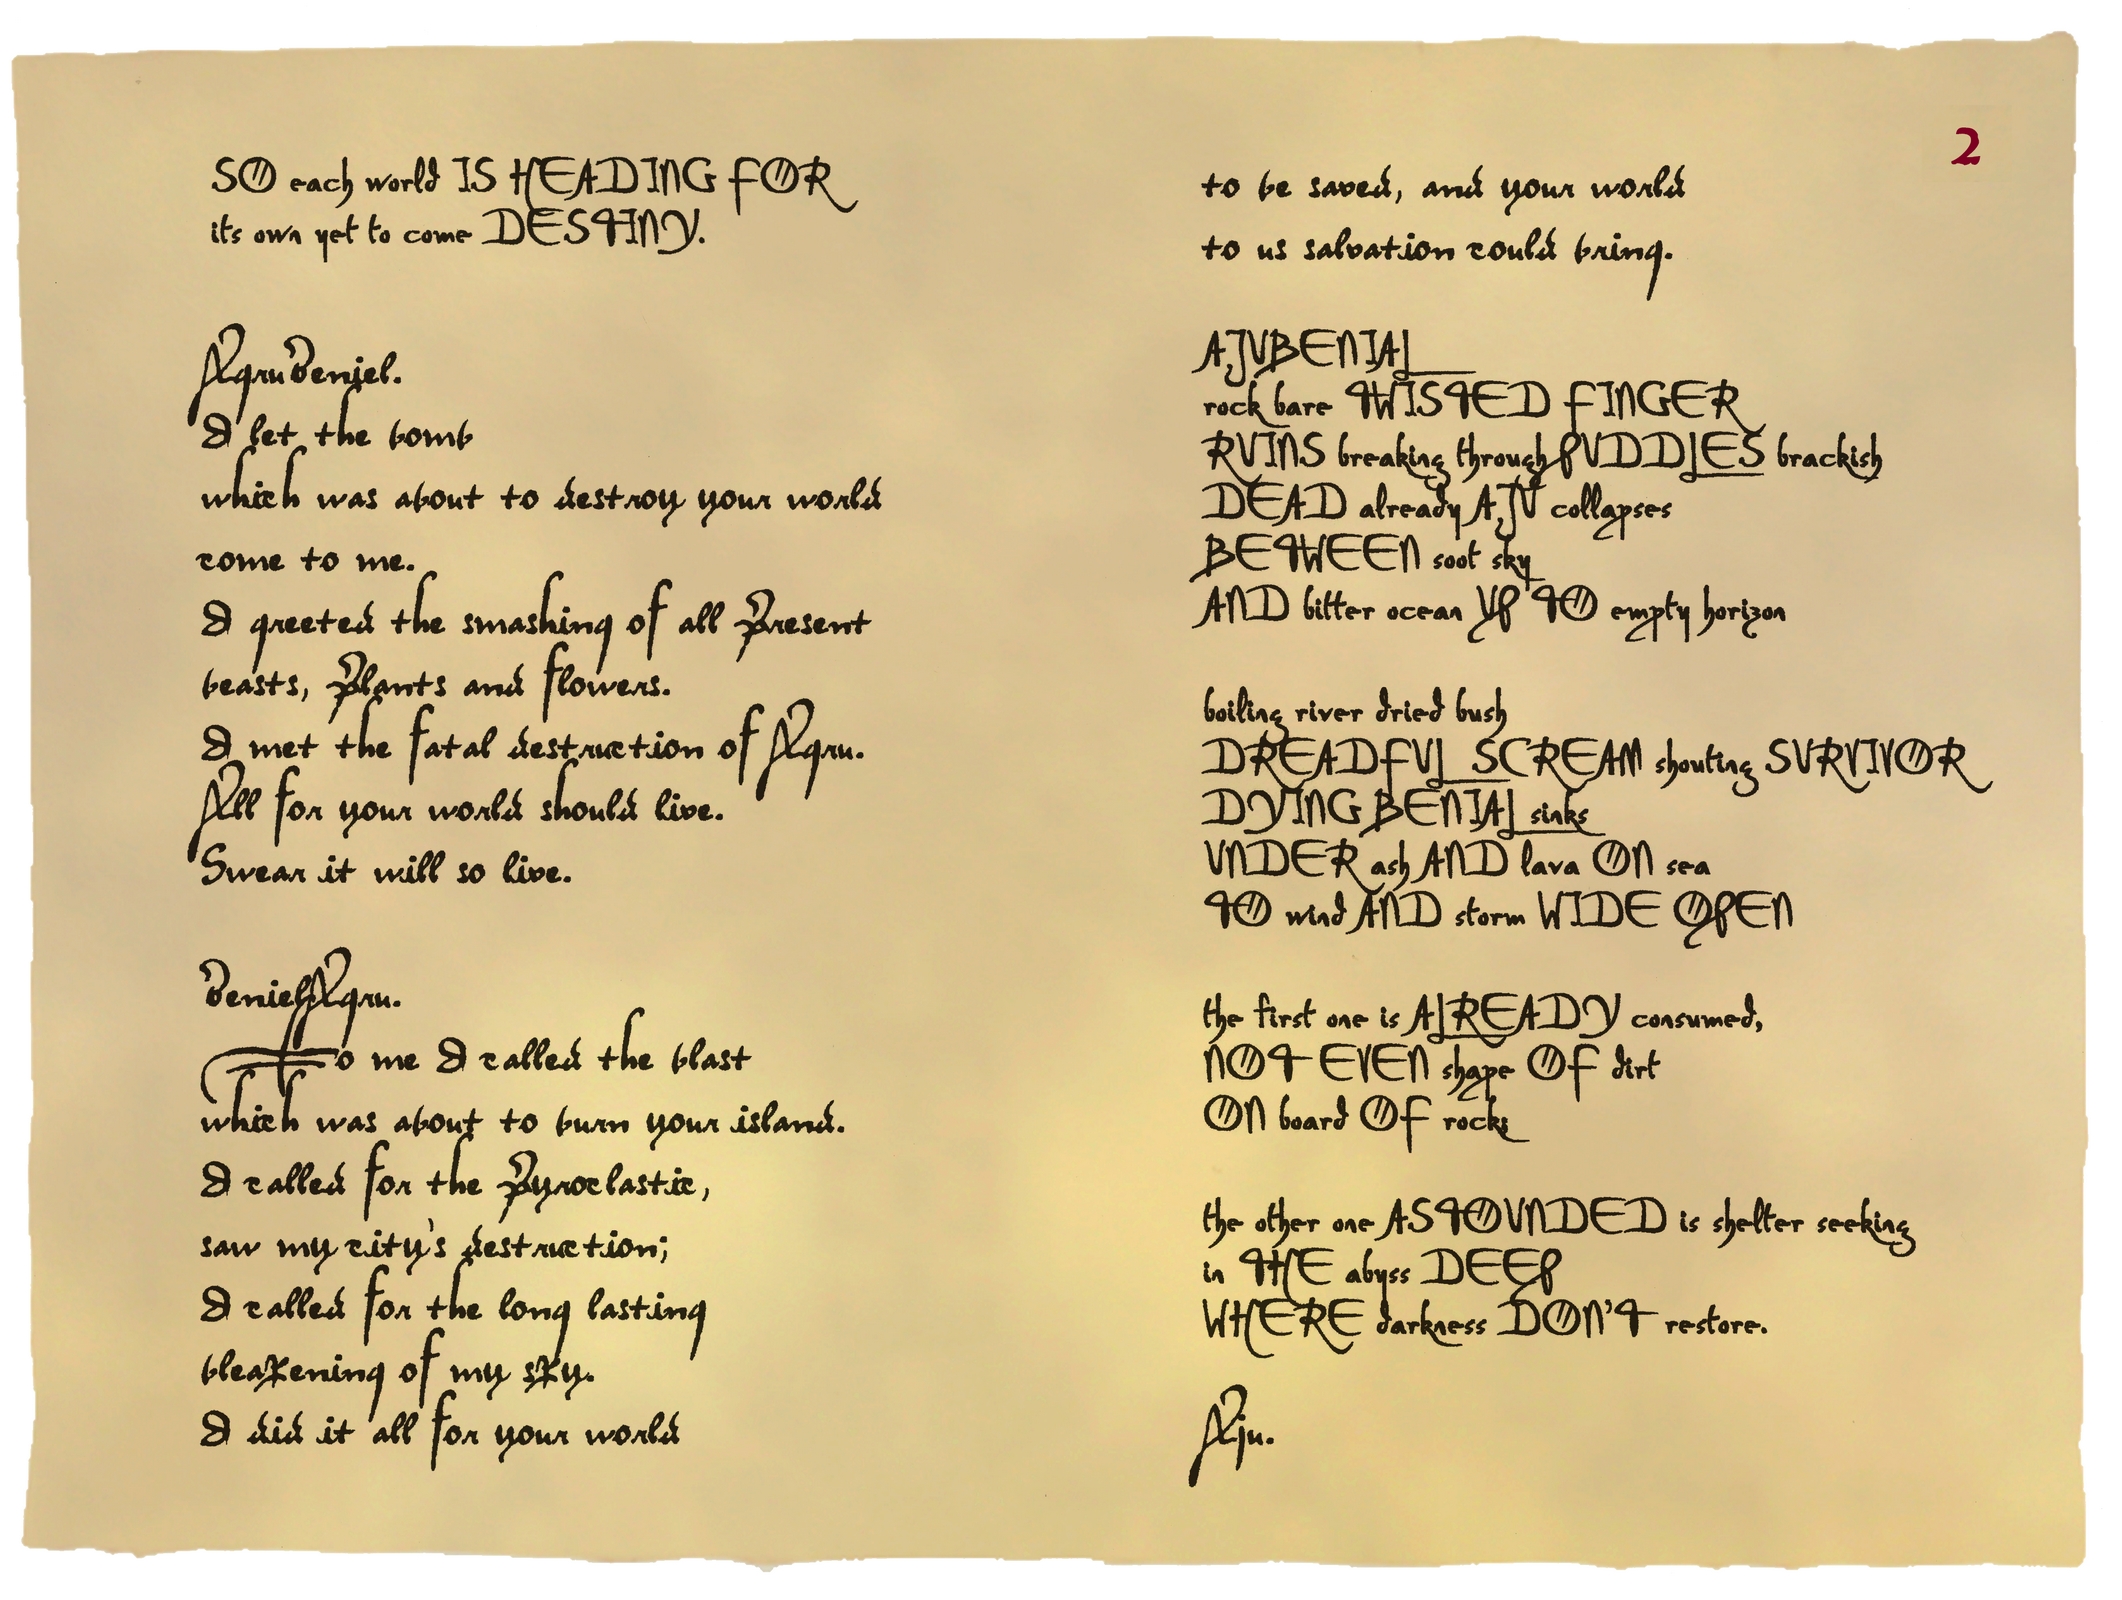 SO each world IS HEADING FOR
its own yet to come DESTINY.
AgruBeniel.
I let the bomb
which was about to destroy your world
come to me.
I greeted the smashing of all Present
beasts, Plants and flowers.
I met the fatal destruction of Agru.
All for your world should live.
Swear it will so live.
BenielAgru.
To me I called the blast
which was about to burn your island.
I called for the Pyroclastic,
saw my city's destruction;
I called for the long lasting
bleakening of my sky.
I did it all for your world
2
to be saved, and your world
to us salvation could bring.
AJUBENIAL
rock bare TWISTED FINGER
RUINS breaking through PUDDLES brackish
DEAD already AJU collapses
BETWEEN soot sky
AND bitter ocean UP TO empty horizon
boiling river dried bush
DREADFUL SCREAM shouting SURVIVOR
DYING BENIAL sinks
UNDER ash AND lava ON sea
TO wind AND storm WIDE OPEN
the first one is ALREADY consumed,
NOT EVEN shape OF dirt
ON board OF rocks
the other one ASTOUNDED is shelter seeking
in THE abyss DEEP
WHERE darkness DON'T restore.
Aju.